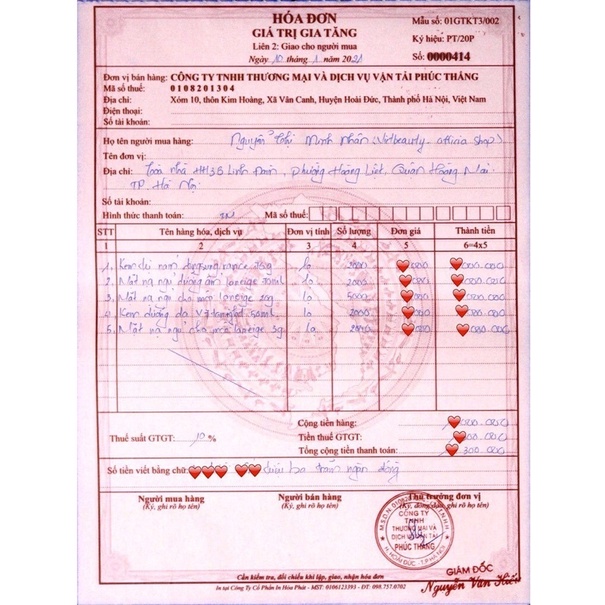 HÓA ĐƠN
GIÁ TRỊ GIA TĂNG
Liên 2: Giao cho người mua
Ngày 10 tháng 1 năm 2021
Mẫu số: 01GTKT3/002
Ký hiệu: PT/20P
Số: 0000414
Đơn vị bán hàng: CÔNG TY TNHH THƯƠNG MẠI VÀ DỊCH VỤ VẬN TẢI PHÚC THẮNG
Mã số thuế: 0108201304
Địa chỉ: Xóm 10, thôn Kim Hoàng, Xã Vân Canh, Huyện Hoài Đức, Thành phố Hà Nội, Việt Nam
Điện thoại:
Số tài khoản:
Họ tên người mua hàng: Nguyễn Thị Minh Nhâm (Vietbeauty - shop)
Tên đơn vị:
Địa chỉ: Tòa nhà HH3B Linh Đàm, Phường Hoàng Liệt, Quận Hoàng Mai
TP Hà Nội
Số tài khoản:
Hình thức thanh toán: TM Mã số thuế:
STT Tên hàng hóa, dịch vụ Đơn vị tính Số lượng Đơn giá Thành tiền
1 2 3 4 5 6=4x5
1. Kem dongsung rannce lọ 2000 000 000.000
2. Mặt nạ ngủ dưỡng ẩm laneige lọ 2000 000 000.000
3. Mặt nạ ngủ cho môi laneige 20g lọ 5000 000 000.000
4. Kem dưỡng da 50ml lọ 2000 000 000.000
5. Mặt nạ ngủ cho môi laneige 3g lọ 2000 000 000.000
Cộng tiền hàng: 000.000
Thuế suất GTGT: 10 % Tiền thuế GTGT: 00.000
Tổng cộng tiền thanh toán: 300.000
Số tiền viết bằng chữ: triệu ba trăm ngàn đồng
Người mua hàng Người bán hàng Thủ trưởng đơn vị
(Ký, ghi rõ họ tên) (Ký, ghi rõ họ tên) (Ký, đóng dấu, ghi rõ họ tên)
CÔNG TY
TNHH
THƯƠNG MẠI VÀ
DỊCH VỤ VẬN TẢI
PHÚC THẮNG
H. HOÀI ĐỨC - T.P HÀ NỘI
GIÁM ĐỐC
Nguyễn Văn Hiến
Cần kiểm tra, đối chiếu khi lập, giao, nhận hóa đơn
In tại Công Ty Cổ Phần In Hòa Phát - MST: 0106123393 - ĐT: 098.757.0702